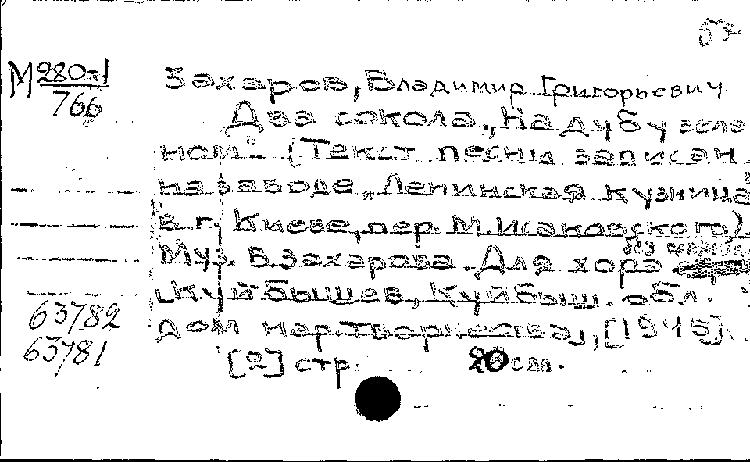 М 280-1
766
Захаров, Владимир Григорьевич
Два сокола. „На дубу зеле
ном". (Текст песни записан
на заводе „Ленинская кузница"
в г. Киеве, пер. М. Исаковского).
Муз. В. Захарова. Для хора без
Куйбышев, Куйбыш. обл.
дом нар. творчества, [1945].
[2] стр. 20 см.
63782
63781